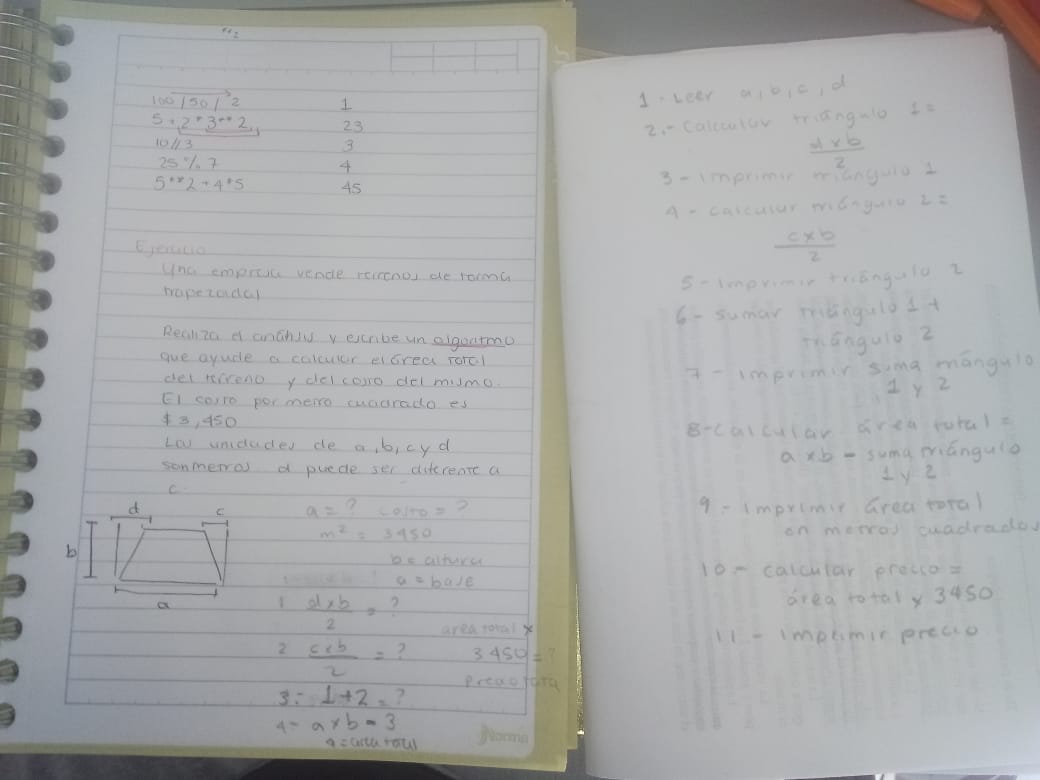 100/50/2 1
5+2*3**2 23
10//3 3
25 % 7 4
5**2+4*5 45
Ejercicio
Una empresa vende terrenos de forma
trapezoidal
Realiza el análisis y escribe un algoritmo
que ayude a calcular el área total
del terreno y del costo del mismo.
El costo por metro cuadrado es
$3,450
Las unidades de a, b, c y d
son metros d puede ser diferente a
c.
d c
b
a
a = ? costo = ?
m² = 3450
b = altura
a = base
1 dxb/2 = ?
2 cxb/2 = ?
3 = 1+2 = ?
4 = a x b - 3
4 = area total
area total x
3450 = ?
Precio
Norma
1 - Leer a, b, c, d
2.- Calcular triángulo 1 =
dxb
2
3 - Imprimir triángulo 1
4 - calcular triángulo 2 =
cxb
2
5 - Imprimir triángulo 2
6 - sumar triángulo 1 +
triángulo 2
7 - Imprimir suma triángulo
1 y 2
8 - calcular área total =
a x b - suma triángulo
1 y 2
9 - Imprimir área total
en metros cuadrados
10 - calcular precio =
área total x 3450
11 - Imprimir precio